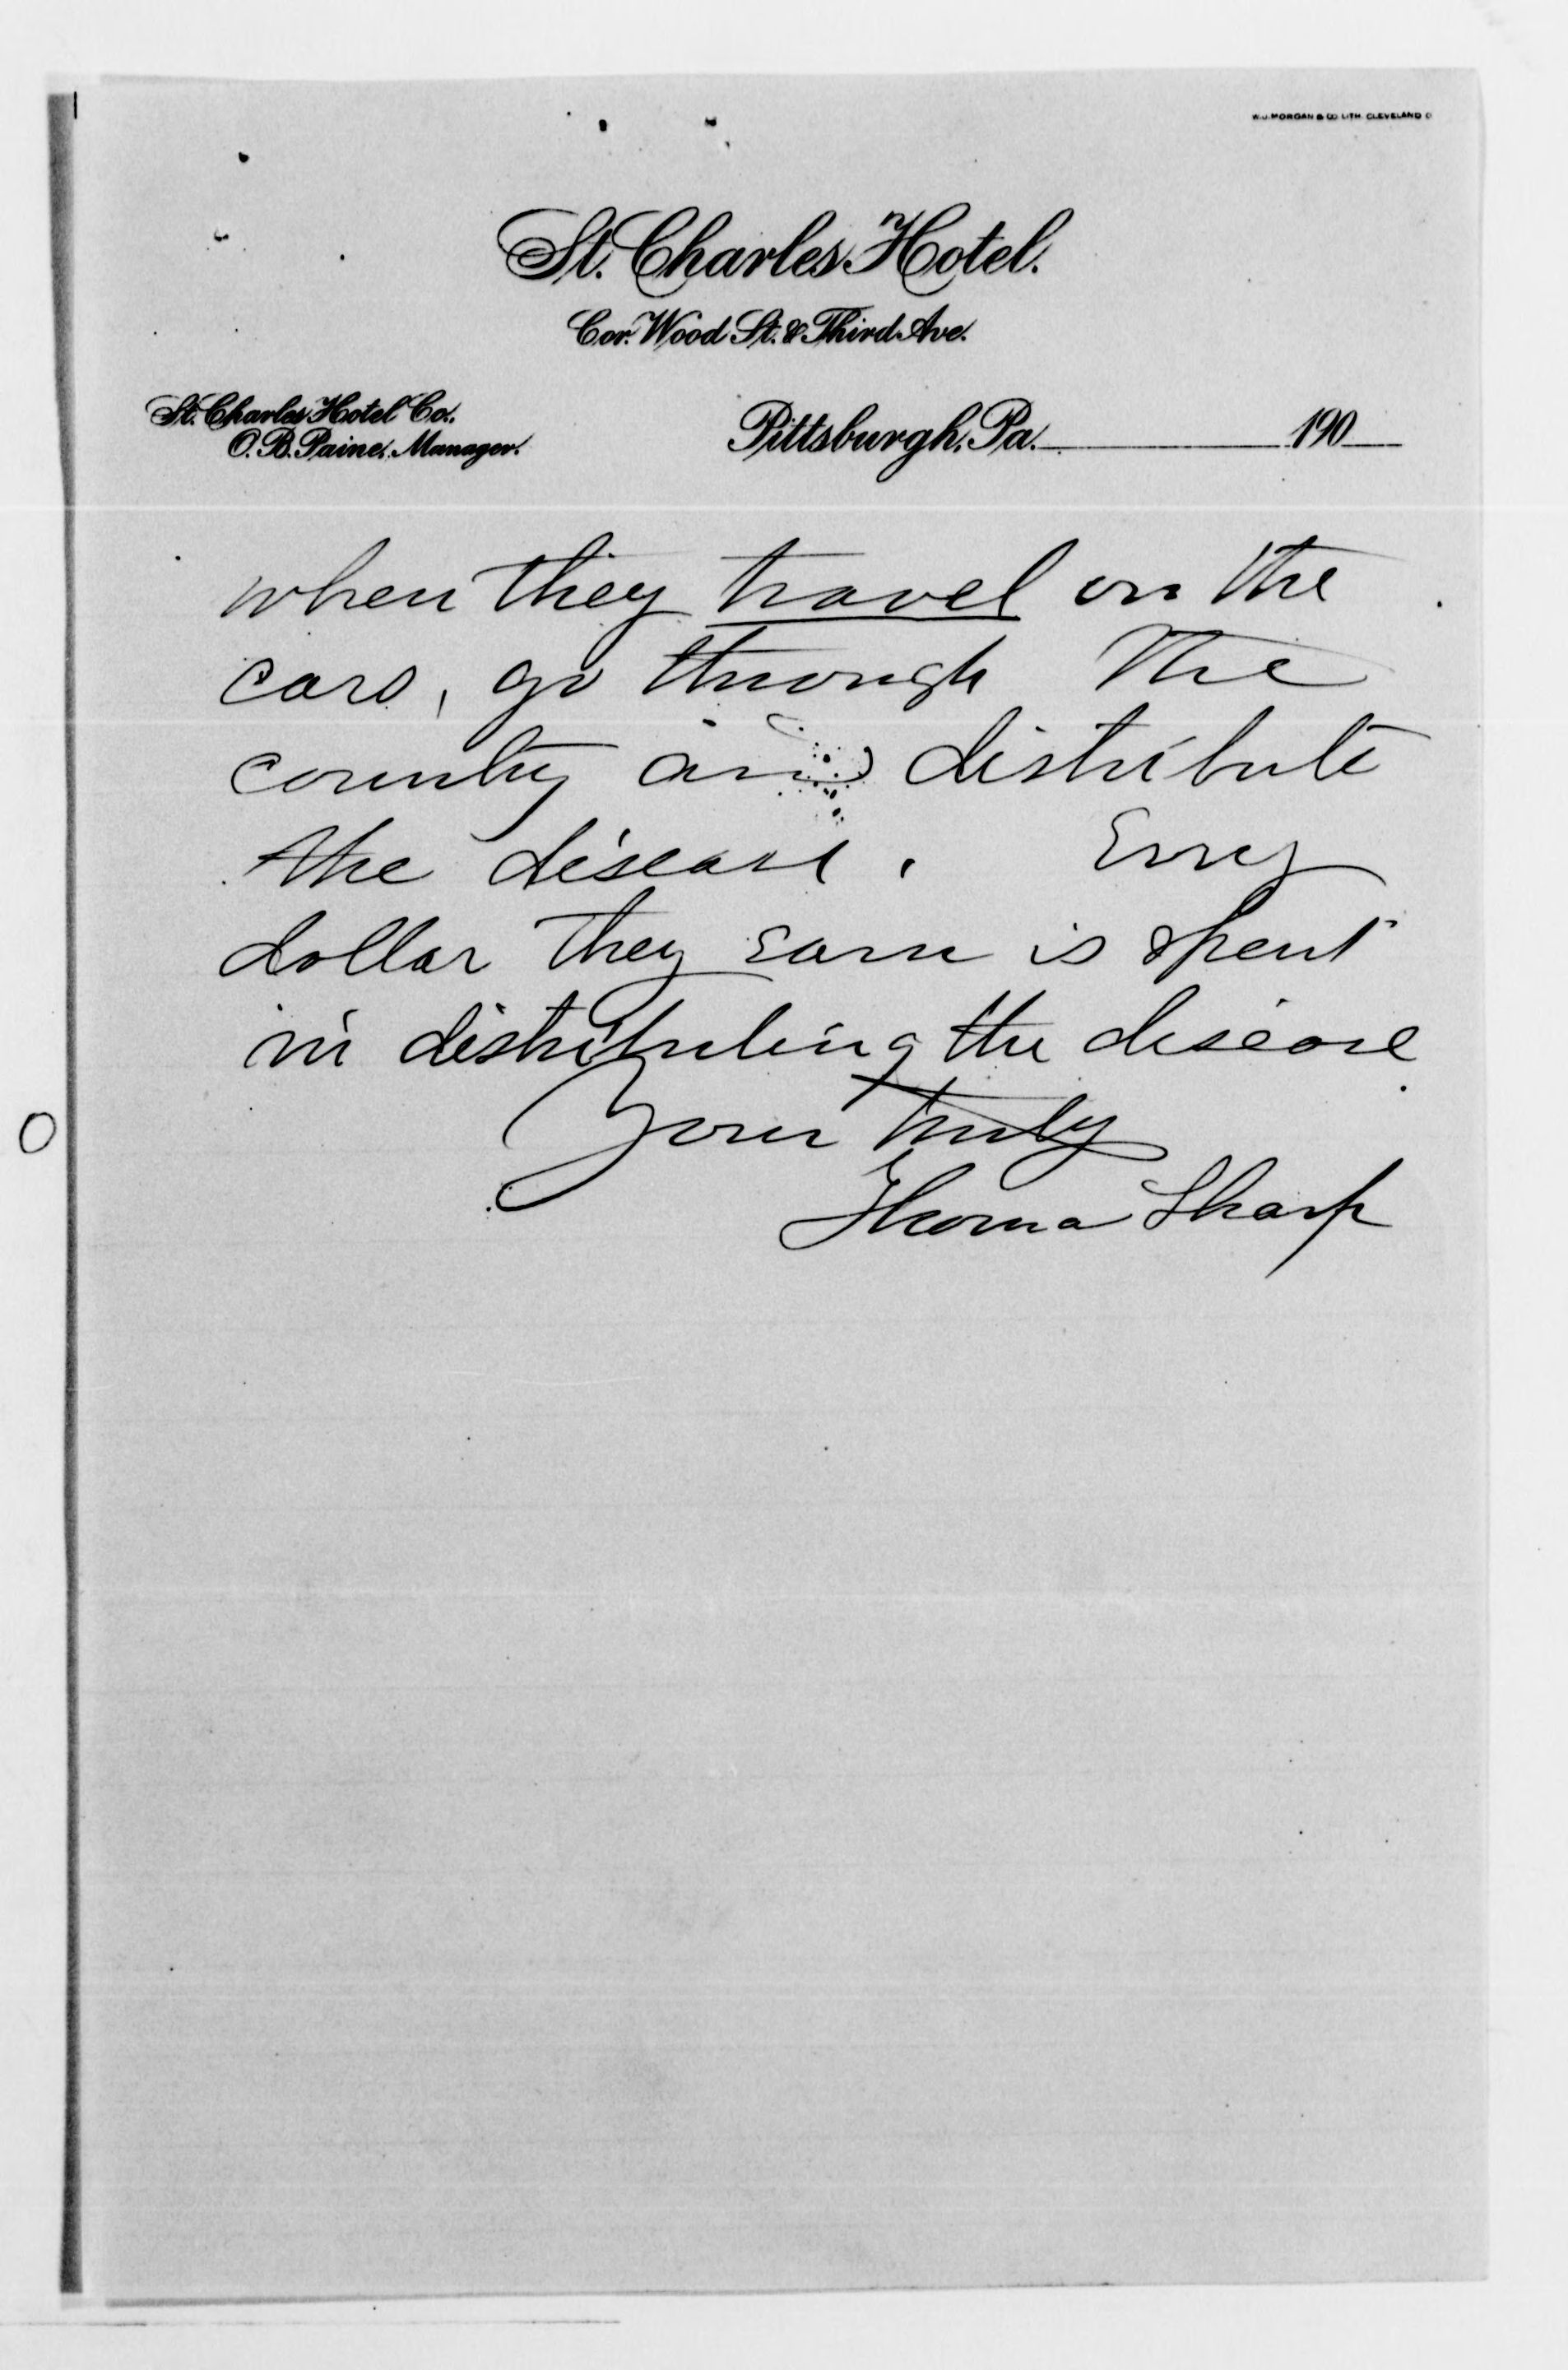 W.J. MORGAN & CO. LITH. CLEVELAND O
St. Charles Hotel.
Cor. Wood St. & Third Ave.
St. Charles Hotel Co.
O. B. Paine, Manager.
Pittsburgh, Pa. 190
when they travel on the
cars, go through the
country and distribute
the disease. Every
dollar they earn is spent
in distributing the disease
Yours truly
Thomas Sharp